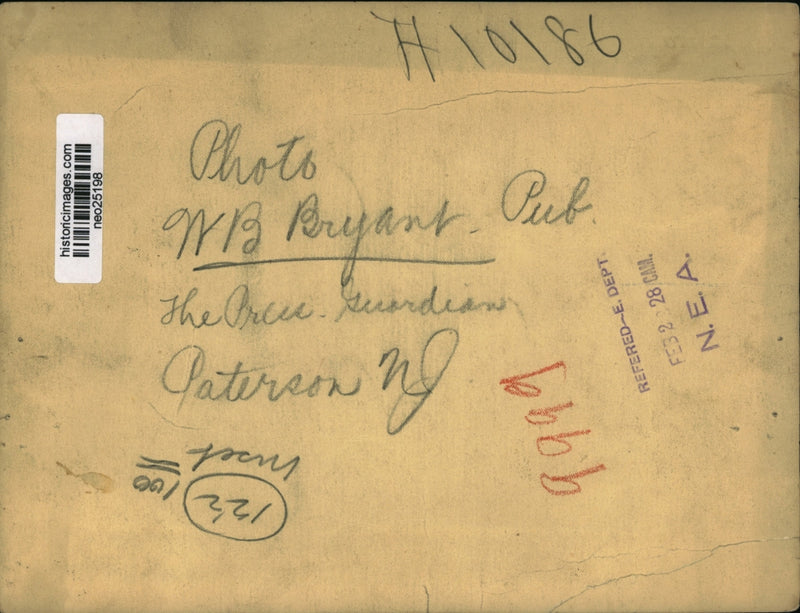 H10186
historicimages.com
neo25198
Photo
WB Bryant. Pub.
The Press. Guardian
Paterson NJ
REFERED-E. DEPT.
FEB 2 28 CAM.
N. E. A.
Inset
12½